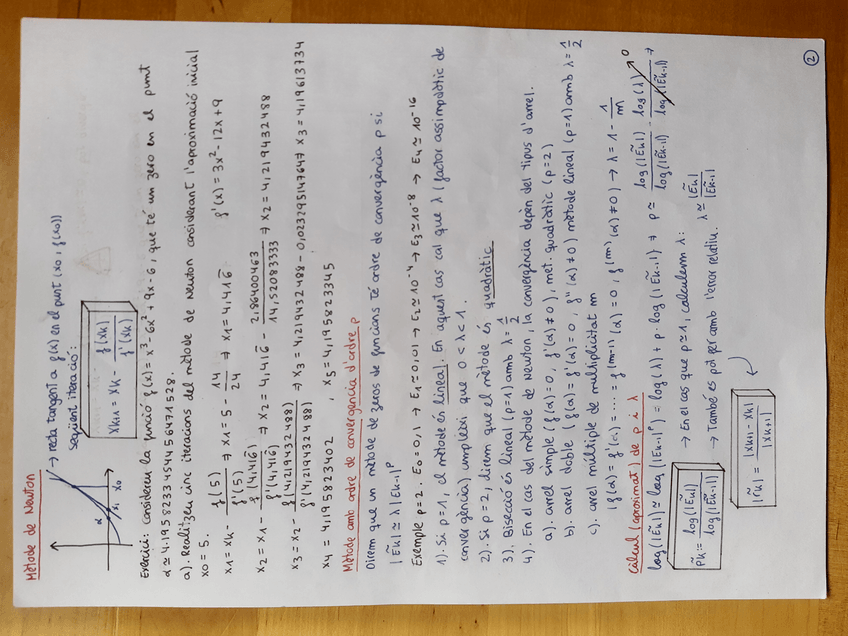 Mètode de Newton
→ recta tangent a f(x) en el punt (x0, f(x0))
Següent iteració:
xk+1 = xk - f(xk) / f'(xk)
α x1 x0
Exercici: considereu la funció f(x) = x³ - 6x² + 9x - 6, que té un zero en el punt
α ≃ 4.195823345445647 1528.
a). Realitzeu cinc iteracions del mètode de Newton considerant l'aproximació inicial
x0 = 5.
f'(x) = 3x² - 12x + 9
x1 = xk - f(5) / f'(5) ⇒ x1 = 5 - 14 / 24 ⇒ x1 = 4,416̄
x2 = x1 - f(4,416̄) / f'(4,416̄) ⇒ x2 = 4,416̄ - 2,86400463 / 14,52083333 ⇒ x2 = 4,219432488
x3 = x2 - f(4,219432488) / f'(4,219432488) ⇒ x3 = 4,219432488 - 0,023295147647 x3 = 4,19613734
x4 = 4,195823402 , x5 = 4,195823345
Mètode amb ordre de convergència d'ordre p
Direm que un mètode de zeros de funcions té ordre de convergència p si
|Ẽk| ≃ λ |Ek-1|^p
Exemple p = 2. E0 = 0,1 → E1 ≃ 0,01 → E2 ≃ 10⁻⁴ → E3 ≃ 10⁻⁸ → E4 ≃ 10⁻¹⁶
1). Si p = 1, el mètode és lineal. En aquest cas cal que λ (factor assimptòtic de
convergència) umpleixi que 0 < λ < 1.
2). Si p = 2, direm que el mètode és quadràtic
3). Bisecció és lineal (p=1) amb λ = 1/2
4). En el cas del mètode de Newton, la convergència depèn del tipus d'arrel.
a). arrel simple (f(α) = 0, f'(α) ≠ 0), met. quadràtic (p=2)
b). arrel doble (f(α) = f'(α) = 0, f''(α) ≠ 0) mètode lineal (p=1) amb λ = 1/2
c). arrel múltiple de multiplicitat m
(f(α) = f'(α) = ... = f^(m-1)(α) = 0, f^(m)(α) ≠ 0) → λ = 1 - 1/m
Càlcul (aproximat) de p i λ
log(|Ẽk|) ≃ log(|Ek-1|^p) = log(λ) + p · log(|Ẽk-1|) → p ≃ log(|Ẽk|) / log(|Ẽk-1|) - log(λ) / log(|Ẽk-1|) → 0
p̃k = log(|Ẽk|) / log(|Ẽk-1|)
→ En el cas que p ≃ 1, calculem λ: λ ≃ |Ẽk| / |Ẽk-1|
→ També es pot fer amb l'error relatiu.
|r̃k| = |xk+1 - xk| / |xk+1|
2